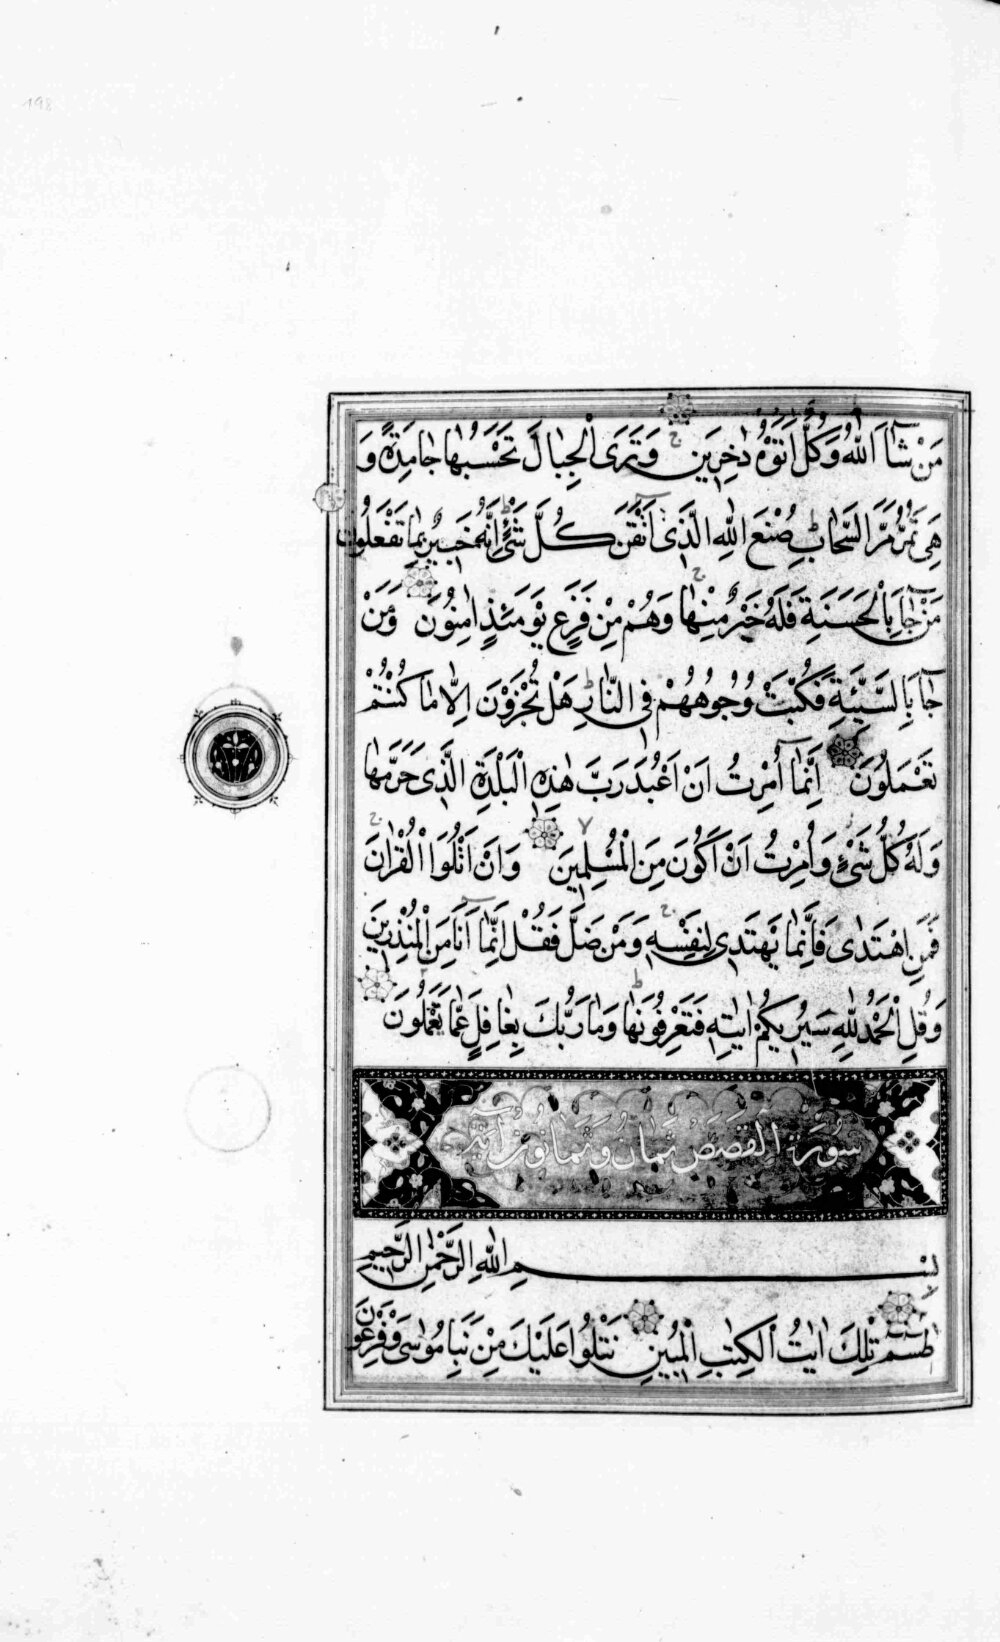 198
مَنْ شَآءَ اللّٰهُ وَكُلٌّ اَتَوْهُ دٰخِرِينَ وَتَرَى الْجِبٰالَ تَحْسَبُهٰا جٰامِدَةً وَ
هِىَ تَمُرُّ مَرَّ السَّحٰابِ صُنْعَ اللّٰهِ الَّذِى اَتْقَنَ كُلَّ شَىْءٍ اِنَّهُ خَبِيرٌ بِمٰا تَفْعَلُونَ
مَنْ جٰآءَ بِالْحَسَنَةِ فَلَهُ خَيْرٌ مِنْهٰا وَهُمْ مِنْ فَزَعٍ يَوْمَئِذٍ اٰمِنُونَ وَمَنْ
جٰآءَ بِالسَّيِّئَةِ فَكُبَّتْ وُجُوهُهُمْ فِى النّٰارِ هَلْ تُجْزَوْنَ اِلّٰا مٰا كُنْتُمْ
تَعْمَلُونَ اِنَّمٰآ اُمِرْتُ اَنْ اَعْبُدَ رَبَّ هٰذِهِ الْبَلْدَةِ الَّذِى حَرَّمَهٰا
وَلَهُ كُلُّ شَىْءٍ وَاُمِرْتُ اَنْ اَكُونَ مِنَ الْمُسْلِمِينَ وَاَنْ اَتْلُوَا الْقُرْاٰنَ
فَمَنِ اهْتَدٰى فَاِنَّمٰا يَهْتَدِى لِنَفْسِهِ وَمَنْ ضَلَّ فَقُلْ اِنَّمٰآ اَنَا مِنَ الْمُنْذِرِينَ
وَقُلِ الْحَمْدُ لِلّٰهِ سَيُرِيكُمْ اٰيٰاتِهِ فَتَعْرِفُونَهٰا وَمٰا رَبُّكَ بِغٰافِلٍ عَمّٰا يَعْمَلُونَ
سُورَة القصص ثمان وثمانون آية
بِسْمِ اللّٰهِ الرَّحْمٰنِ الرَّحِيمِ
طٰسٓمٓ تِلْكَ اٰيٰاتُ الْكِتٰابِ الْمُبِينِ نَتْلُوا عَلَيْكَ مِنْ نَبَاِ مُوسٰى وَفِرْعَوْنَ